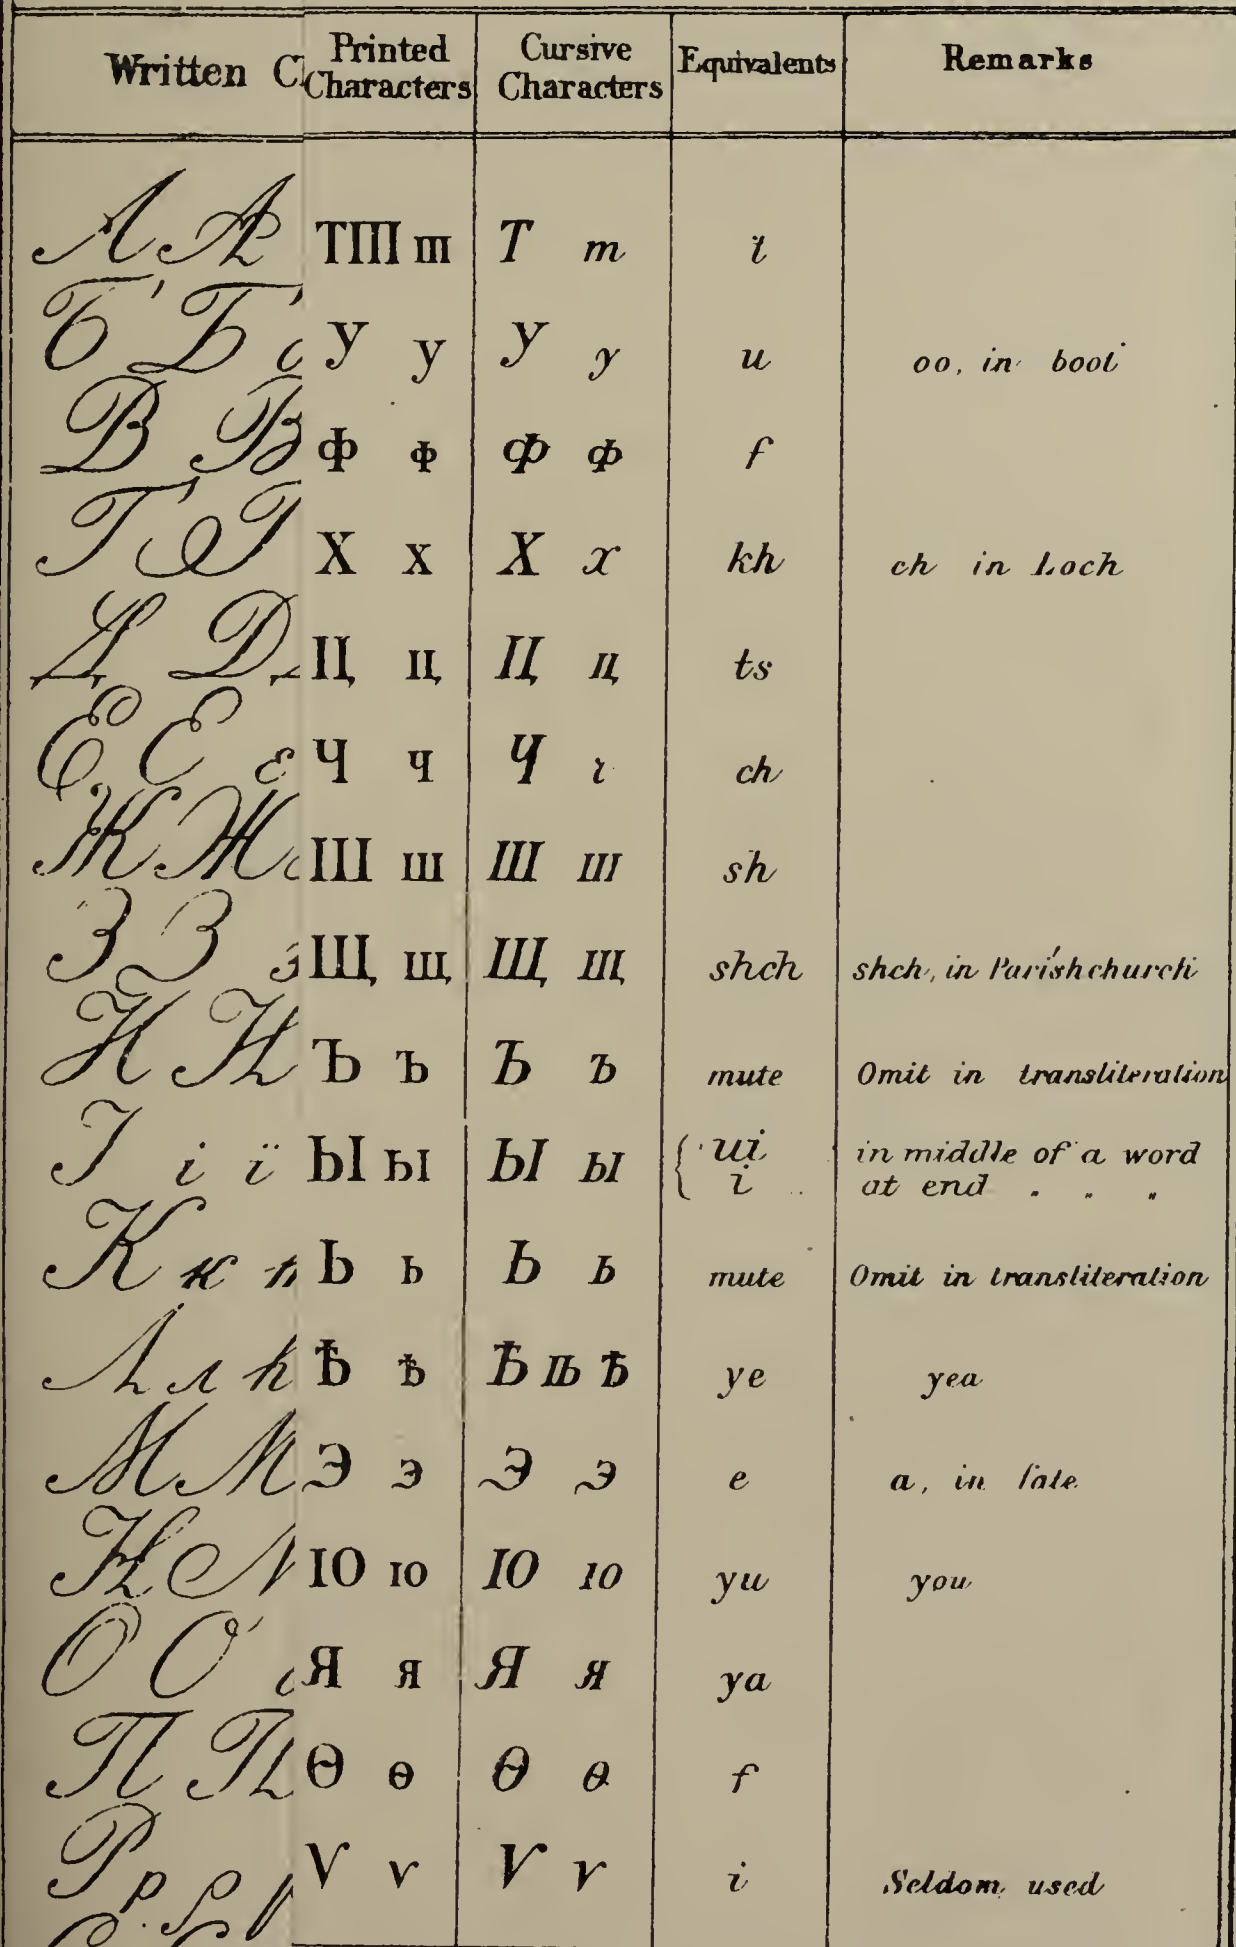 Written Printed Characters Cursive Characters Equivalents Remarks
А А ТШ т Т т t
Б Б У у У у u oo, in boot
В В Ф ф Ф ф f
Г Г Х х Х х kh ch in Loch
Д Д Ц ц Ц ц ts
Е Е е Ч ч Ч ч ch
Ж Ж Ш ш Ш ш sh
З З з Щ щ Щ щ shch shch, in Parish church
И И Ъ ъ Ъ ъ mute Omit in transliteration
І і ї Ы ы Ы ы { ui in middle of a word
i at end " " "
К к к Ь ь Ь ь mute Omit in transliteration
Л л Ѣ ѣ Ѣ ѣ ye yea
М М Э э Э э e a, in fate
Н Н Ю ю Ю ю yu you
О О Я я Я я ya
П П Ѳ ѳ Ѳ ѳ f
Р р р Ѵ ѵ Ѵ ѵ i Seldom used